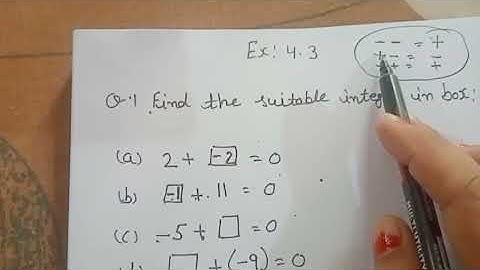 Ex: 4.3
- - = +
+ - = -
+ + = +
Q.1 Find the suitable integer in box:
(a) 2 + -2 = 0
(b) -1 + 11 = 0
(c) -5 + □ = 0
(d) □ + (-9) = 0